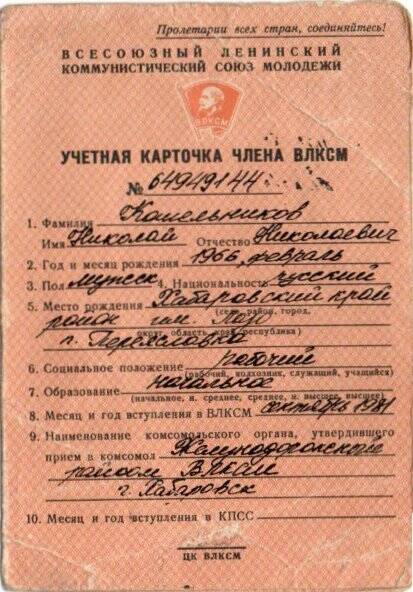 Пролетарии всех стран, соединяйтесь!
ВСЕСОЮЗНЫЙ ЛЕНИНСКИЙ
КОММУНИСТИЧЕСКИЙ СОЮЗ МОЛОДЕЖИ
ВЛКСМ
УЧЕТНАЯ КАРТОЧКА ЧЛЕНА ВЛКСМ
№ 64949144
1. Фамилия Кошельников
Имя Николай Отчество Николаевич
2. Год и месяц рождения 1966, февраль
3. Пол мужск 4. Национальность русский
5. Место рождения Хабаровский край
(село, район, город,
район им. Лазо
округ, область, край, республика)
п. Переяславка
6. Социальное положение рабочий
(рабочий, колхозник, служащий, учащийся)
7. Образование начальное
(начальное, н. среднее, среднее, н. высшее, высшее)
8. Месяц и год вступления в ВЛКСМ октябрь 1981
9. Наименование комсомольского органа, утвердившего
прием в комсомол Железнодорожного
райком ВЛКСМ
г. Хабаровск
10. Месяц и год вступления в КПСС
ЦК ВЛКСМ